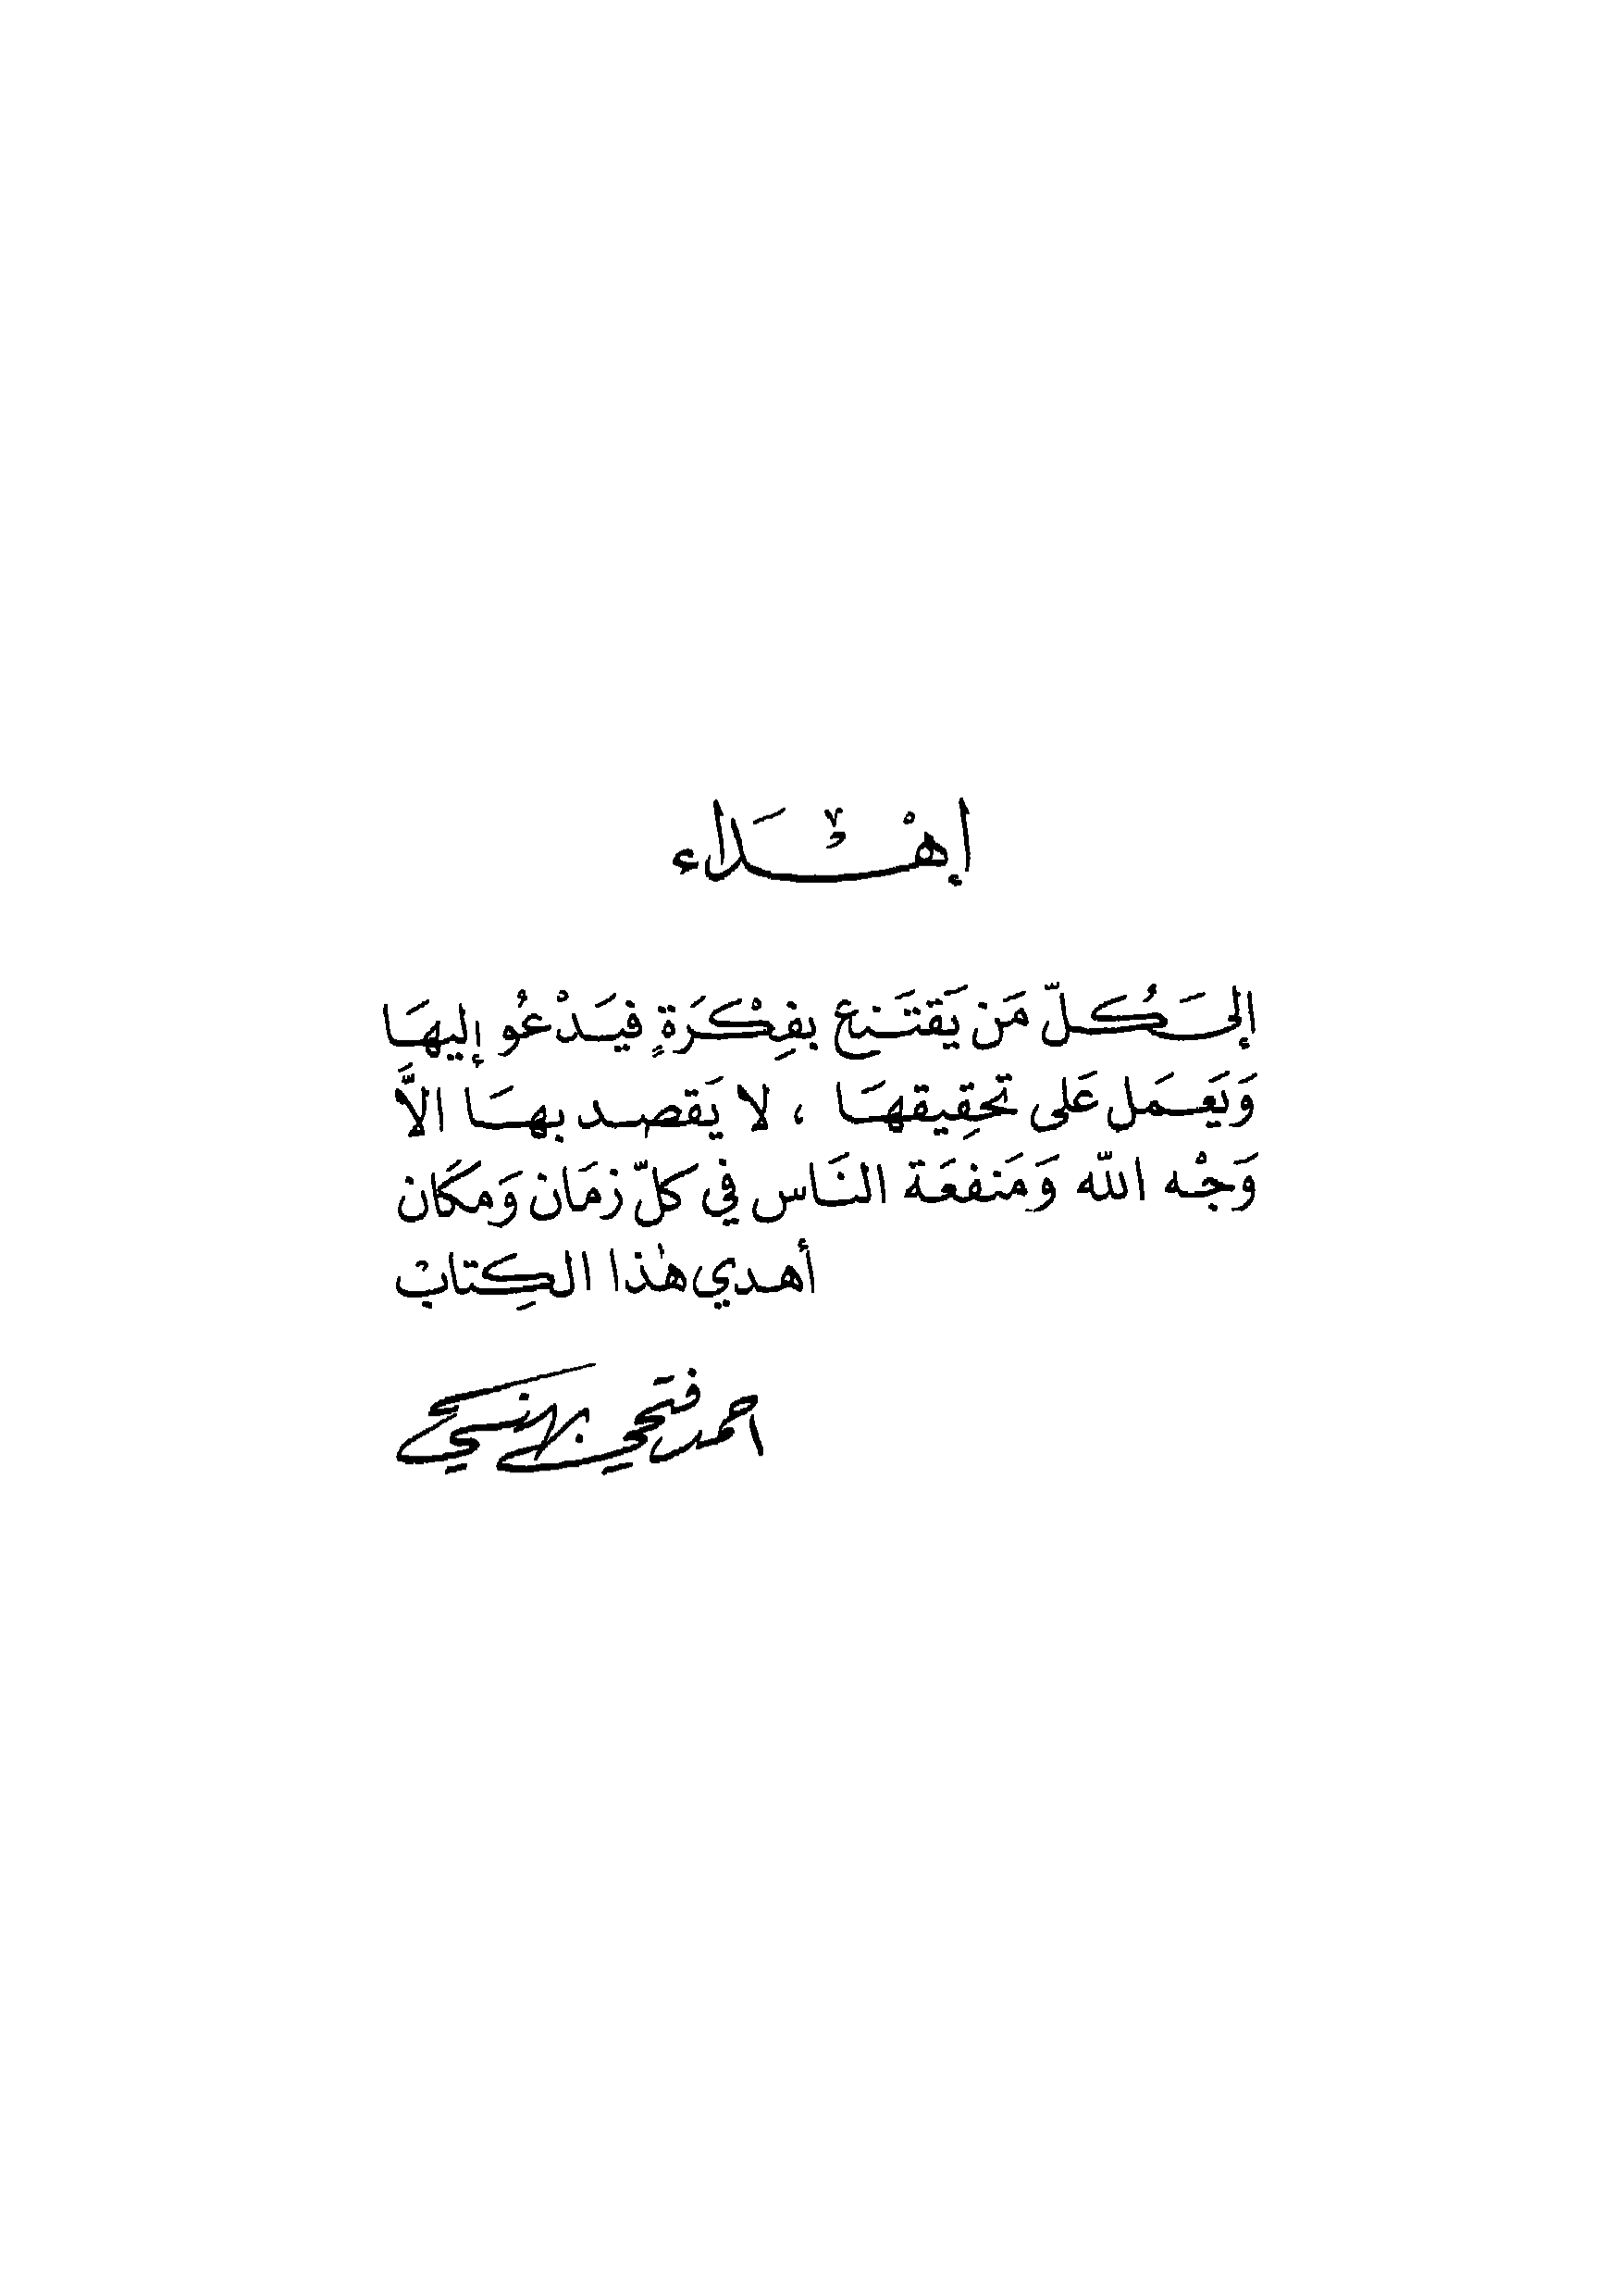 إهْدَاء
إلىَ كُلّ مَن يَقتَنع بفِكْرَةٍ فيَدْعُو إليهَا
وَيَعمَل عَلى تحقِيقهَا ، لا يَقصد بهَا الاَّ
وَجْه اللّه وَمَنفعَة النَاس في كلّ زمَان وَمكَان
أهدي هٰذا الكِتابْ
احمد فتحي بهنسي